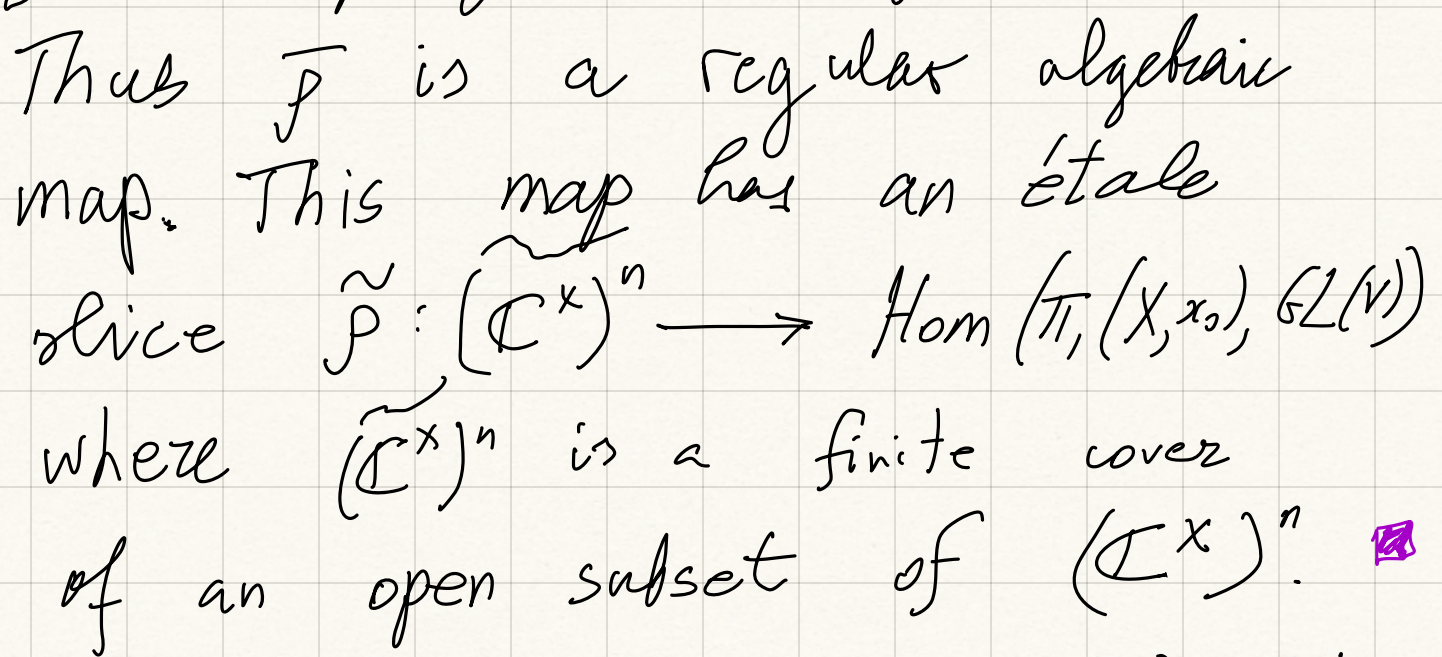 Thus ρ̅ is a regular algebraic
map. This map has an étale
slice ρ̃ : (ℂ^×)^n~ ⟶ Hom (π₁(X,x₀), GL(V))
where (ℂ^×)^n~ is a finite cover
of an open subset of (ℂ^×)^n.